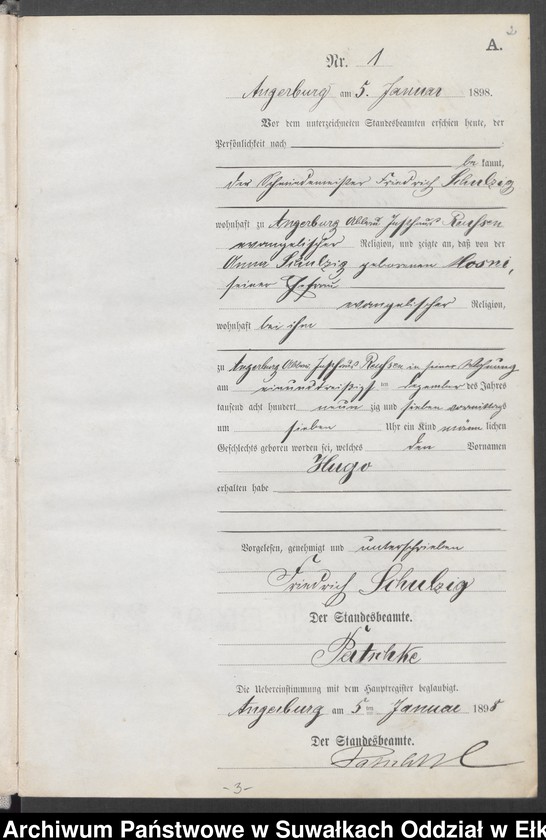 2
A.
Nr. 1
Angerburg am 5. Januar 1898.
Vor dem unterzeichneten Standesbeamten erschien heute, der
Persönlichkeit nach
be kannt,
der Schmiedemeister Friedrich Schulzig
wohnhaft zu Angerburg Abbau
evangelischer Religion, und zeigte an, daß von der
Anna Schulzig geborenen
seiner Ehefrau
evangelischer Religion,
wohnhaft bei ihm
zu Angerburg Abbau in seiner Wohnung
am einunddreißigst en Dezember des Jahres
tausend acht hundert neun zig und sieben vormittags
um sieben Uhr ein Kind männ lichen
Geschlechts geboren worden sei, welches den Vornamen
Hugo
erhalten habe
Vorgelesen, genehmigt und unterschrieben
Friedrich Schulzig
Der Standesbeamte.
Die Uebereinstimmung mit dem Hauptregister beglaubigt.
Angerburg am 5 ten Januar 1898
Der Standesbeamte.
-3-
Archiwum Państwowe w Suwałkach Oddział w Ełk